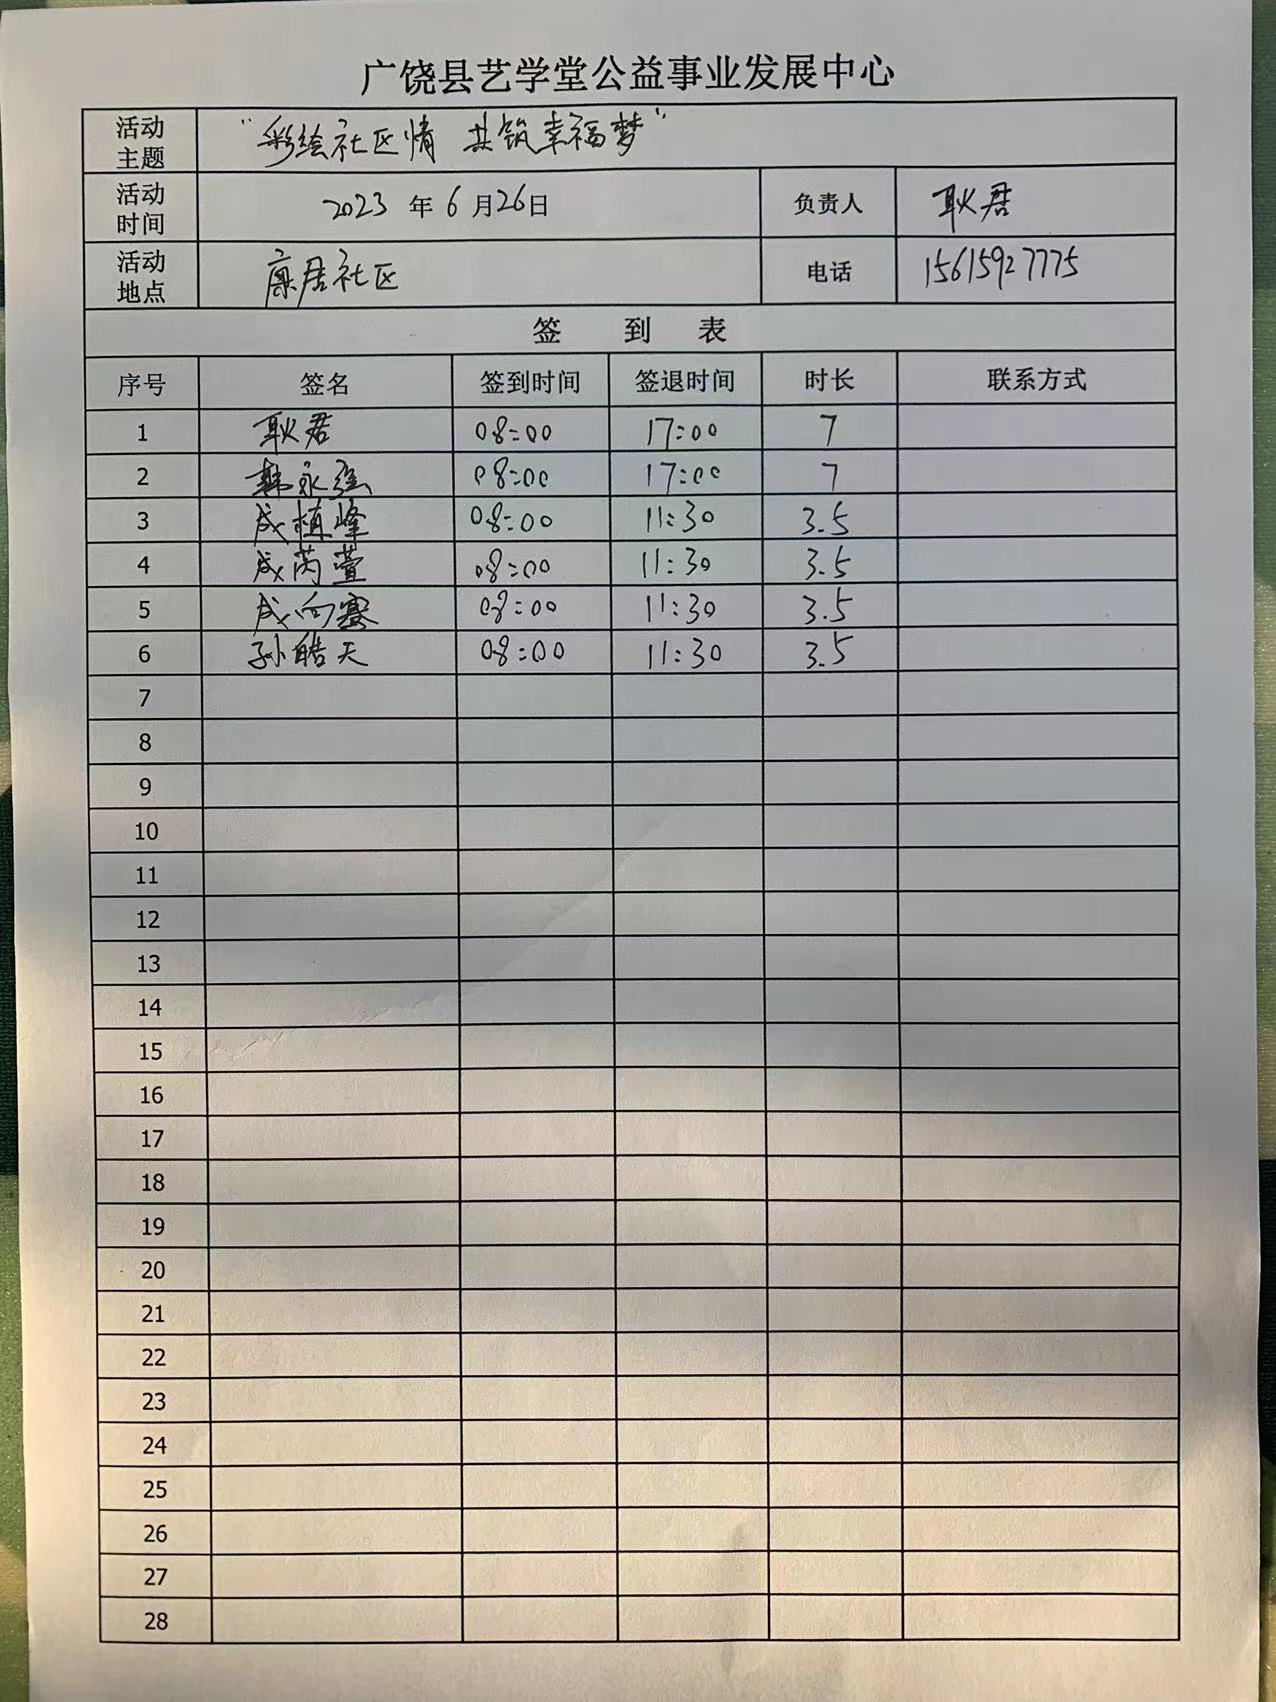 广饶县艺学堂公益事业发展中心
活动主题 “彩绘社区情 共筑幸福梦”
活动时间 2023 年 6 月 26 日 负责人 耿君
活动地点 康居社区 电话 15615927775
签 到 表
序号 签名 签到时间 签退时间 时长 联系方式
1 耿君 08:00 17:00 7
2 韩永强 08:00 17:00 7
3 成植峰 08:00 11:30 3.5
4 成芮萱 08:00 11:30 3.5
5 成向赛 08:00 11:30 3.5
6 孙皓天 08:00 11:30 3.5
7
8
9
10
11
12
13
14
15
16
17
18
19
20
21
22
23
24
25
26
27
28